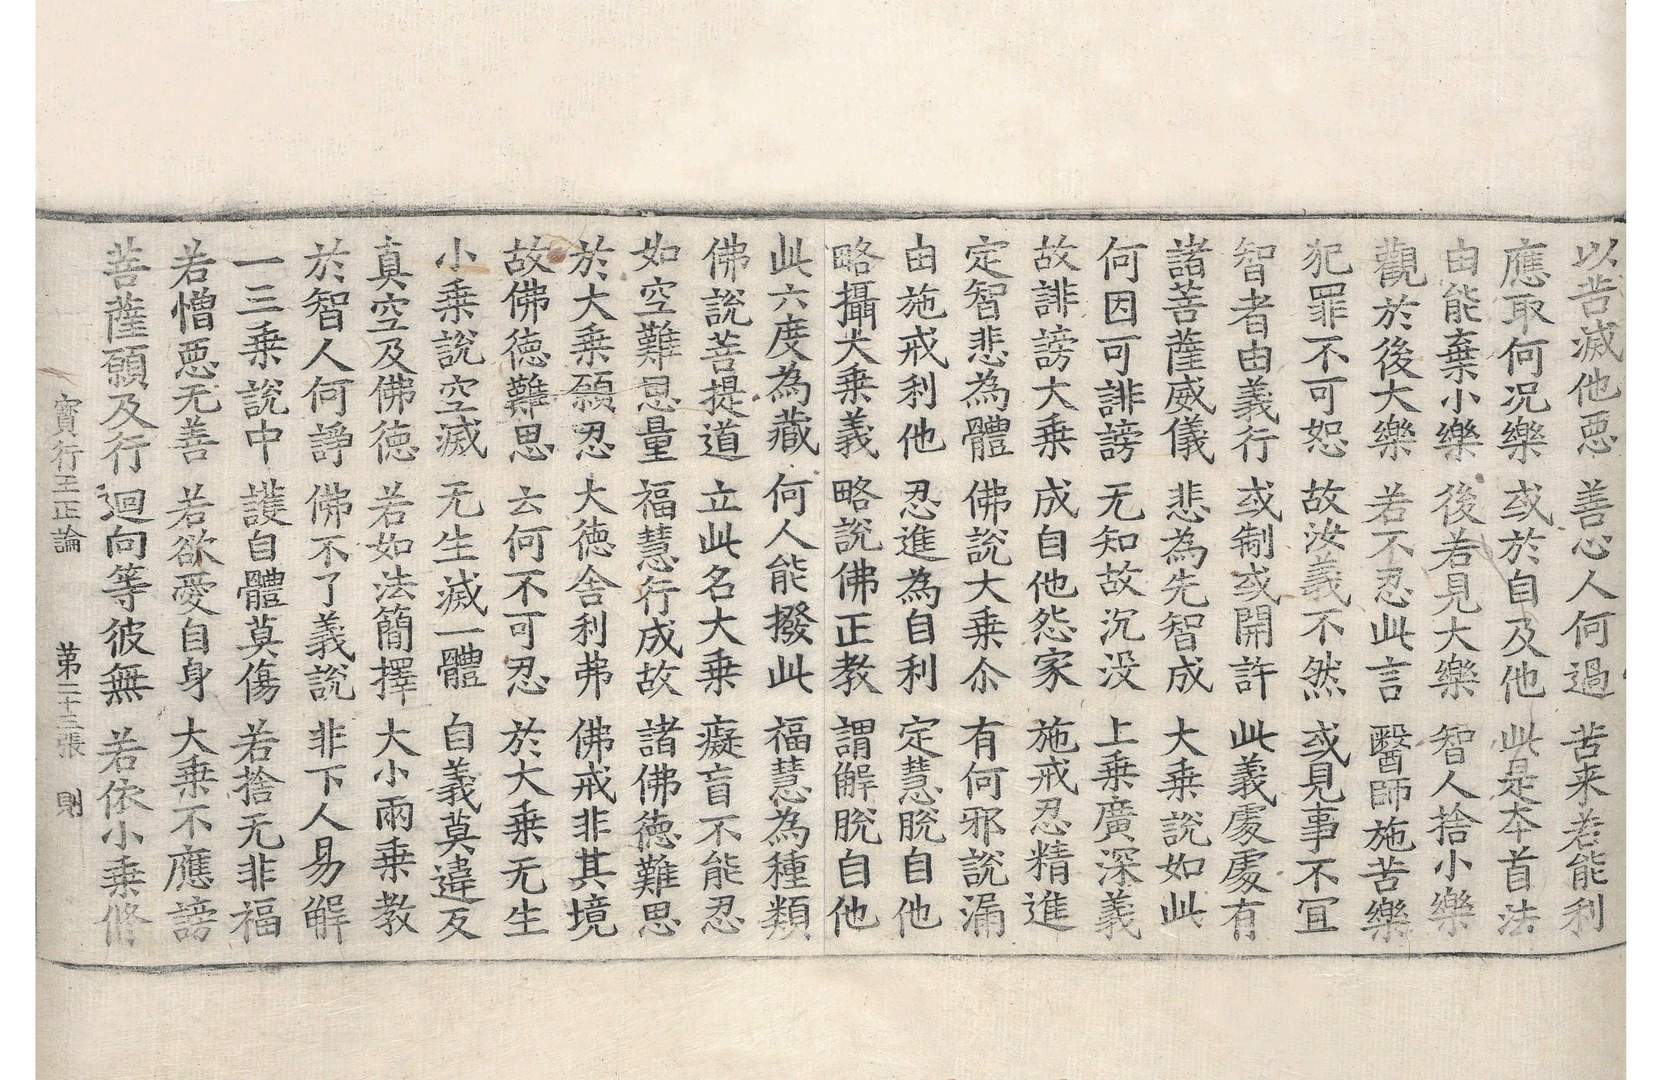 以苦滅他惡 善心人何過 苦来若能利
應取何况樂 或於自及他 此是夲首法
由能棄小樂 後若見大樂 智人捨小樂
觀於後大樂 若不忍此言 醫師施苦樂
犯罪不可恕 故汝義不然 或見事不冝
智者由義行 或制或開許 此義處處有
諸菩薩威儀 悲為先智成 大乗說如此
何因可誹謗 无知故沉没 上乗廣深義
故誹謗大乗 成自他怨家 施戒忍精進
定智悲為體 佛說大乗尒 有何邪說漏
由施戒利他 忍進為自利 定慧脫自他
略攝大乗義 略說佛正教 謂解脫自他
此六度為藏 何人能撥此 福慧為種類
佛說菩提道 立此名大乗 癡盲不能忍
如空難思量 福慧行成故 諸佛德難思
於大乗願忍 大德舍利弗 佛戒非其境
故佛德難思 云何不可忍 於大乗无生
小乗說空滅 无生滅一體 自義莫違反
真空及佛德 若如法簡擇 大小兩乗教
於智人何諍 佛不了義說 非下人易解
一三乗說中 護自體莫傷 若捨无非福
若憎惡无善 若欲愛自身 大乗不應謗
菩薩願及行 迴向等彼無 若依小乗修
寶行王正論 第二十三張 則